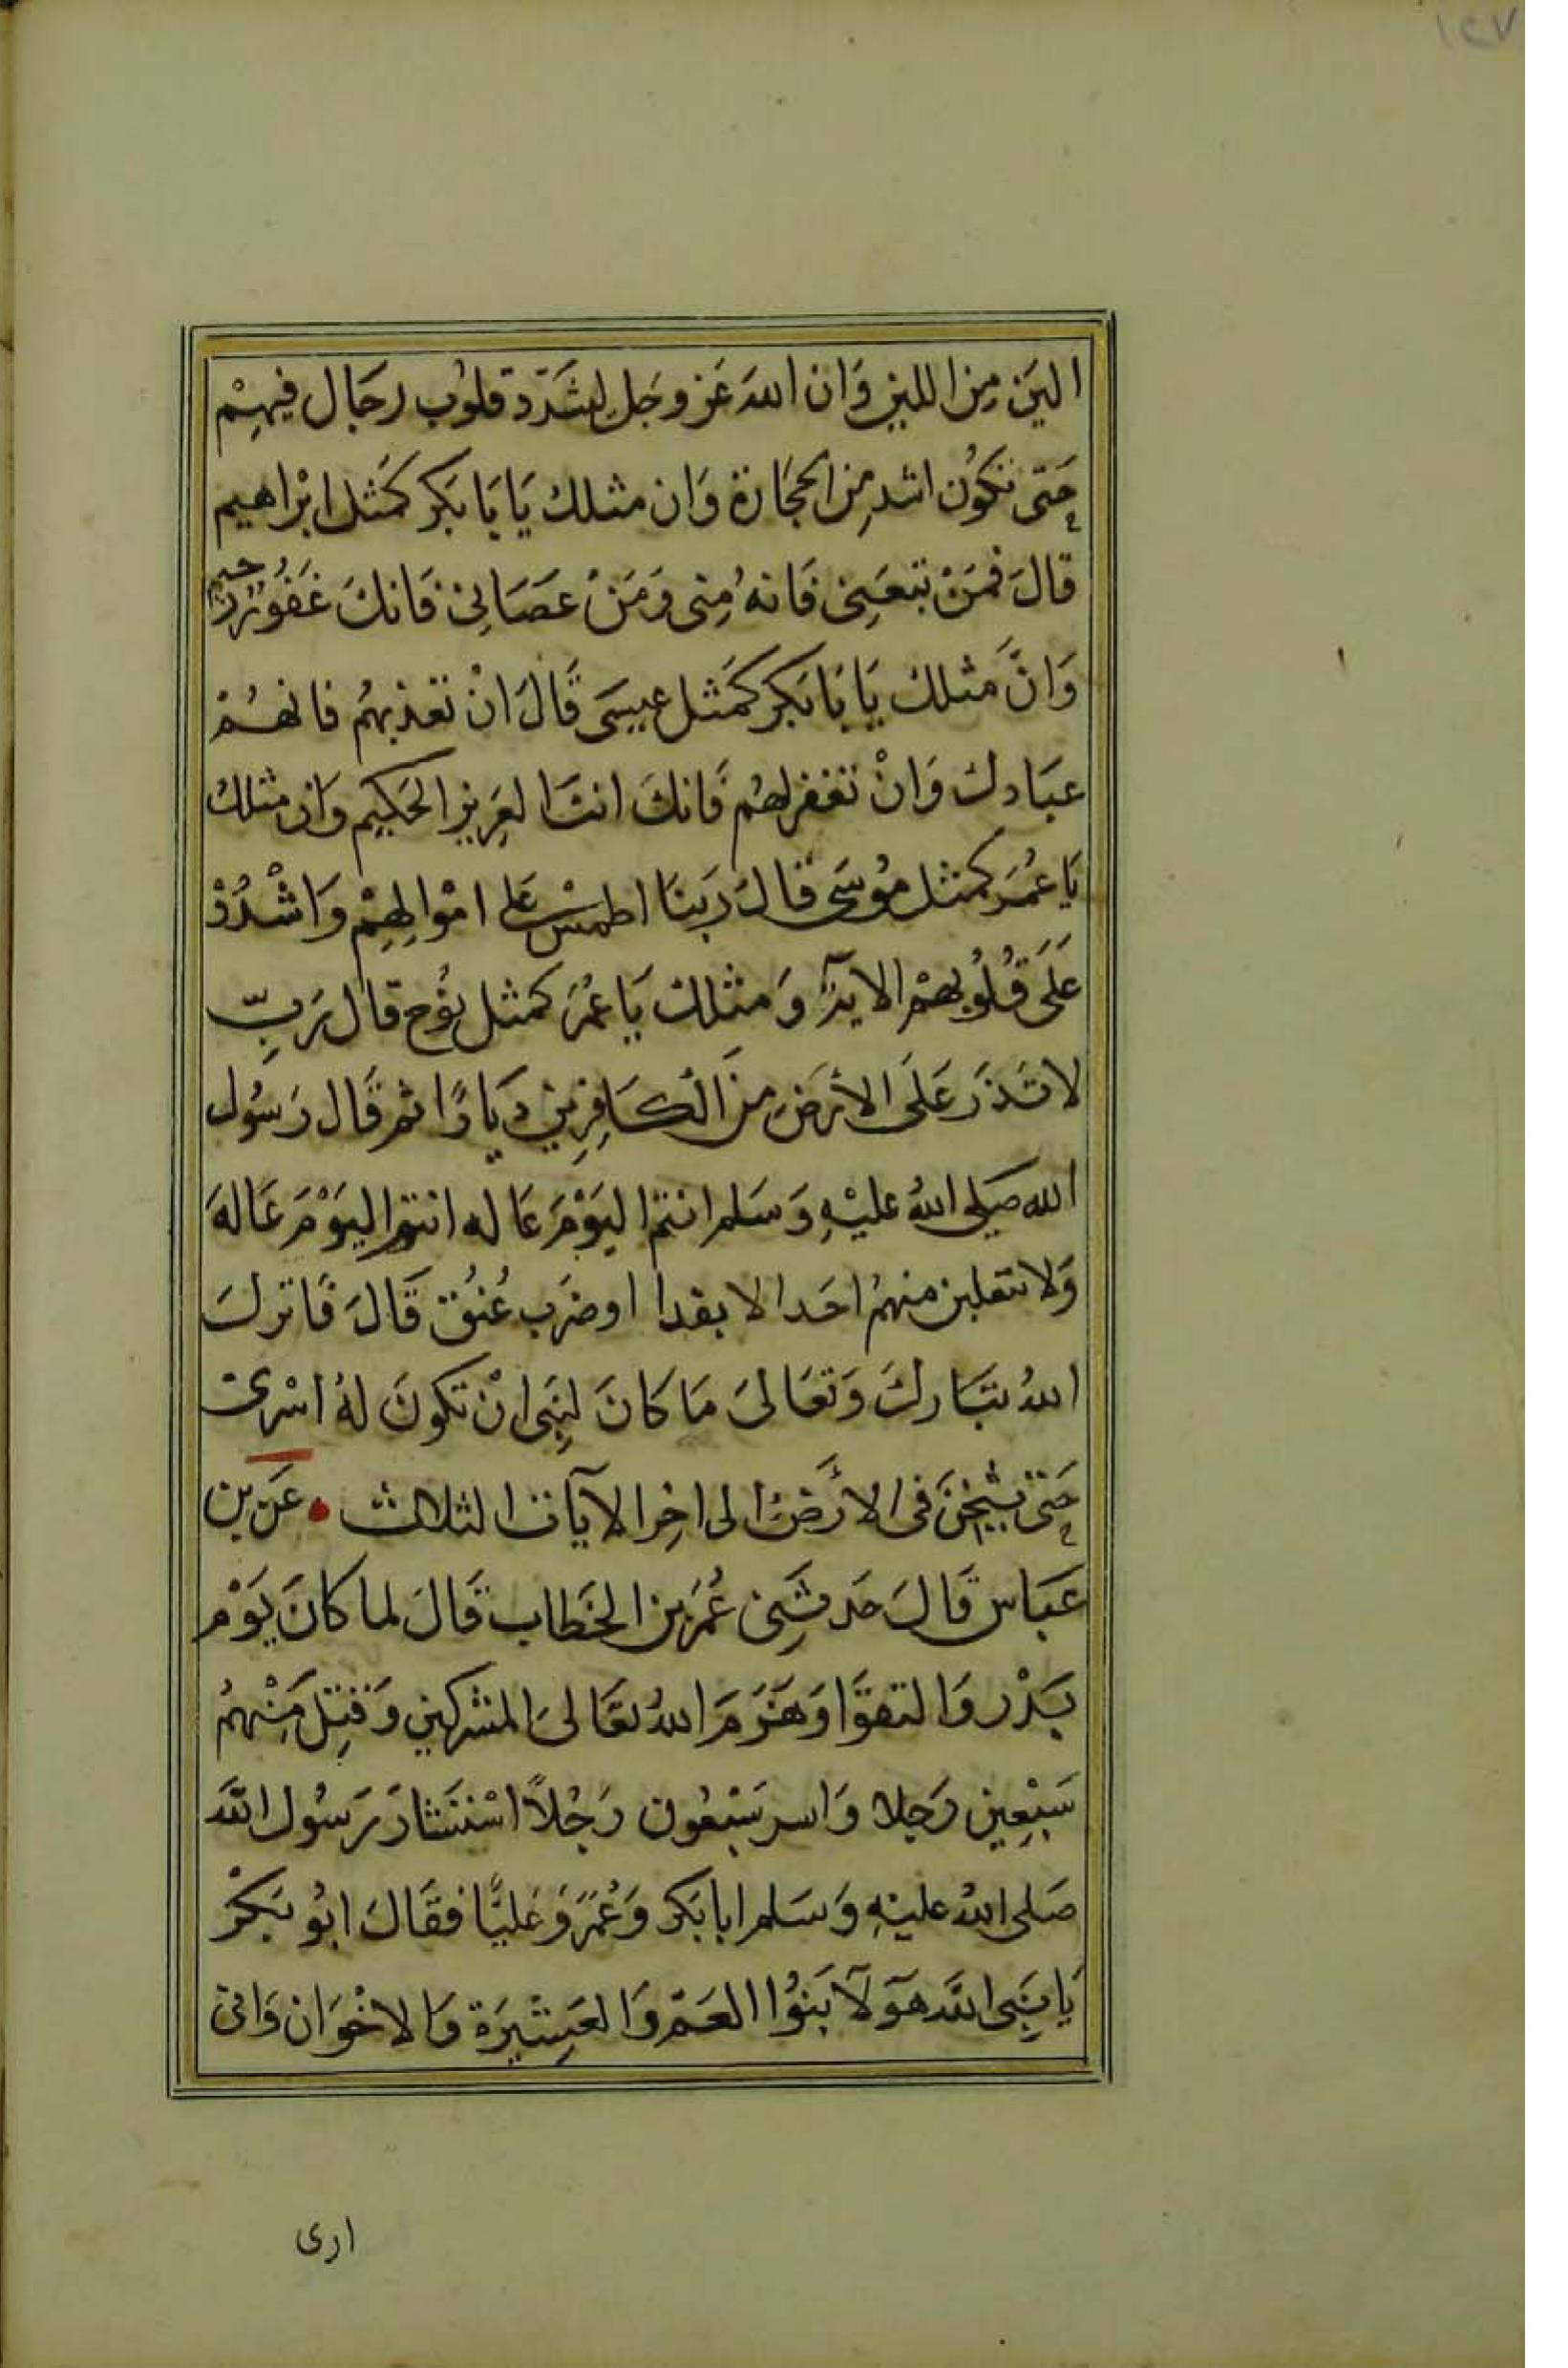 ١٢٧
الين من اللبن وان الله عز وجل ليشدد قلوب رجال فيهم
حتى تكون اشد من الحجارة وان مثلك يابابكر كمثل ابراهيم
قال فمن تبعنى فانه منى ومن عصانى فانك غفور رحيم
وان مثلك يابابكر كمثل عيسى قال ان تعذبهم فانهم
عبادك وان تغفر لهم فانك انت العزيز الحكيم وان مثلك
يا عمر كمثل موسى قال ربنا اطمس على اموالهم واشدد
على قلوبهم الاية ومثلك يا عمر كمثل نوح قال رب
لا تذر على الأرض من الكافرين ديارا ثم قال رسول
الله صلى الله عليه وسلم انتم اليوم عاله انتم اليوم عالة
ولا ينقلبن منهم احدا لا بفدا او ضرب عنق قال فانزل
الله تبارك وتعالى ما كان لنبى ان تكون له اسرى
حتى يثخن فى الأرض الى اخر الآيات الثلاث • عن بن
عباس قال حدثنى عمر بن الخطاب قال لما كان يوم
بدر والتقوا وهزم الله تعالى المشركين وقتل منهم
سبعين رجلا واسر سبعون رجلاً استشار رسول الله
صلى الله عليه وسلم ابا بكر وعمر وعليا فقال ابو بكر
يا نبى الله هولآ بنوا العم والعشيرة والاخوان وانى
ارى